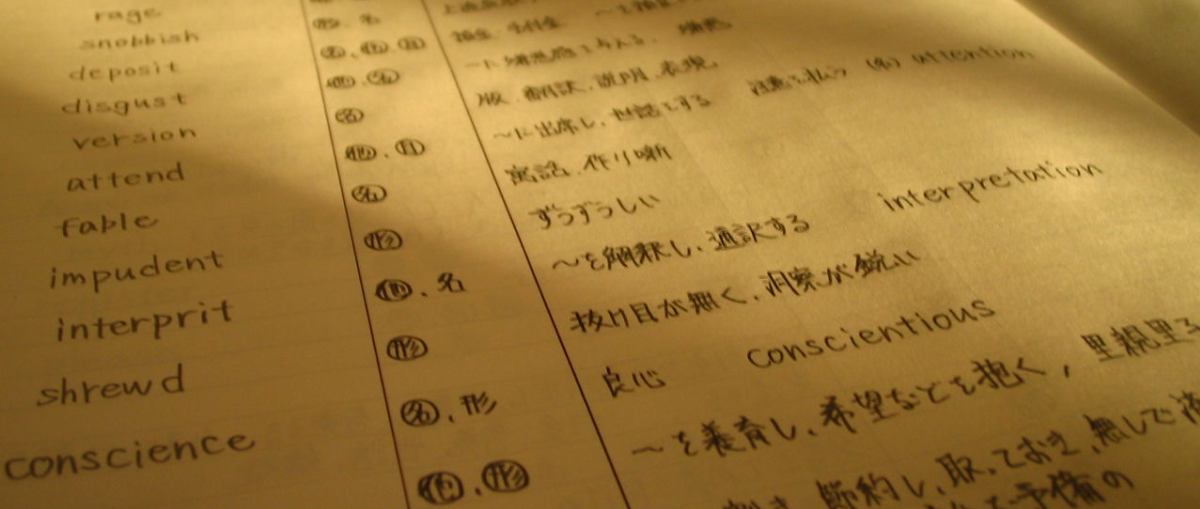 rage
snobbish 形. 名
deposit 名. 他. 自 預金. 手付金
disgust 他. 名 〜に嫌悪感を与える.
version 名 版. 翻訳. 説明. 表現.
attend 他. 自 〜に出席し、世話をする 注意を払う (名) attention
fable 名 寓話. 作り噺
impudent 形 ずうずうしい
interprit 他. 名 〜を解釈し、通訳する interpretation
shrewd 形 抜け目が無く、洞察が鋭い
conscience 名. 形 良心 conscientious
他. 形 〜を養育し、希望などを抱く, 里親里子
節約し、取っておき、無しで
予備の